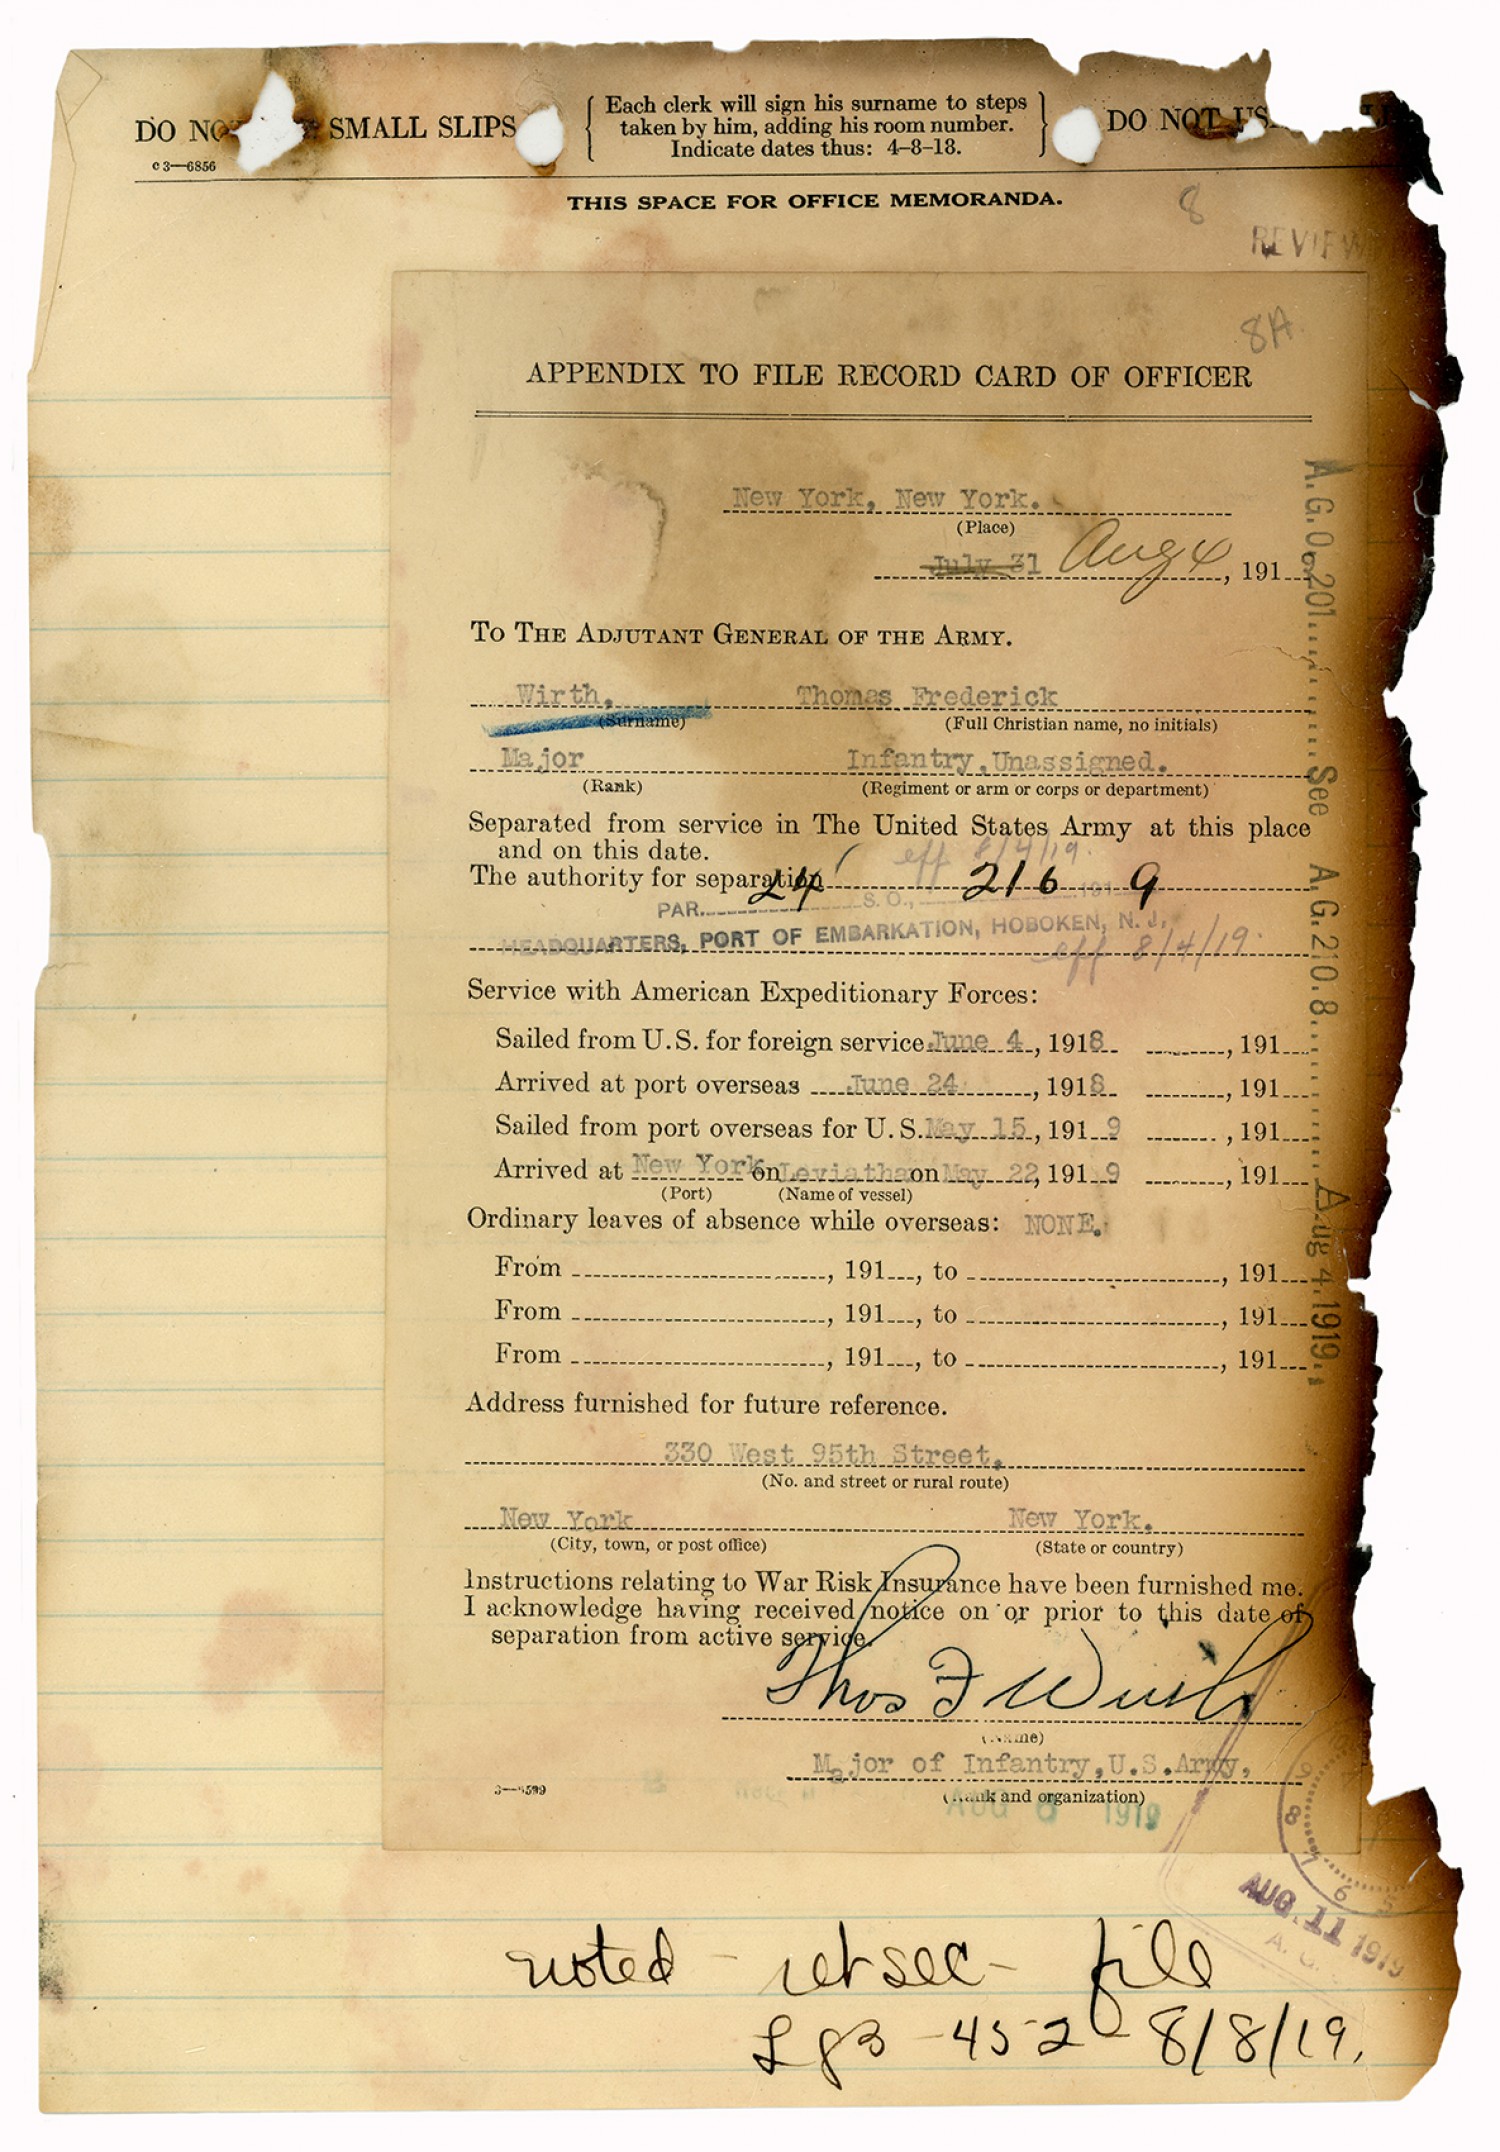 DO NO SMALL SLIPS
Each clerk will sign his surname to steps
taken by him, adding his room number.
Indicate dates thus: 4-8-18.
DO NOT US
c 3—6856
THIS SPACE FOR OFFICE MEMORANDA.
8
REVIEW
8A
APPENDIX TO FILE RECORD CARD OF OFFICER
New York, New York.
(Place)
July 31 Aug 4, 191
TO THE ADJUTANT GENERAL OF THE ARMY.
Wirth, Thomas Frederick
(Surname) (Full Christian name, no initials)
Major Infantry, Unassigned.
(Rank) (Regiment or arm or corps or department)
Separated from service in The United States Army at this place
and on this date. eff 8/4/19.
The authority for separation 24 216 9
PAR. S. O., 191
HEADQUARTERS, PORT OF EMBARKATION, HOBOKEN, N. J.,
eff 8/4/19.
Service with American Expeditionary Forces:
Sailed from U.S. for foreign service June 4, 1918 , 191
Arrived at port overseas June 24, 1918 , 191
Sailed from port overseas for U.S. May 15, 1919 , 191
Arrived at New York on Leviathan on May 22, 1919 , 191
(Port) (Name of vessel)
Ordinary leaves of absence while overseas: NONE.
From , 191 , to , 191
From , 191 , to , 191
From , 191 , to , 191
Address furnished for future reference.
330 West 95th Street,
(No. and street or rural route)
New York New York.
(City, town, or post office) (State or country)
Instructions relating to War Risk Insurance have been furnished me.
I acknowledge having received notice on or prior to this date of
separation from active service.
Thos F Wirth
(Name)
Major of Infantry, U.S. Army,
(Rank and organization)
3—5599
AUG 6 1919
A.G.O. 201 See A.G. 210.8 Aug 4, 1919.
9 8 7 6 5
AUG 11 1919
A. G.
noted - ret sec - file
45-2 8/8/19.